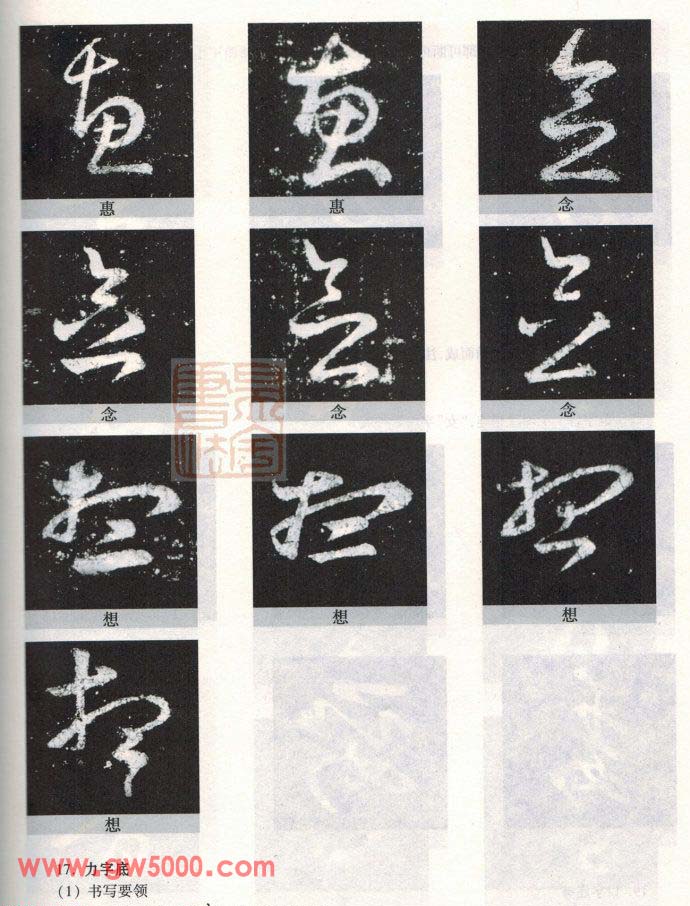 惠 惠 念
念 念 念
想 想 想
想
www.gw5000.com
17. 力字底
(1) 书写要领